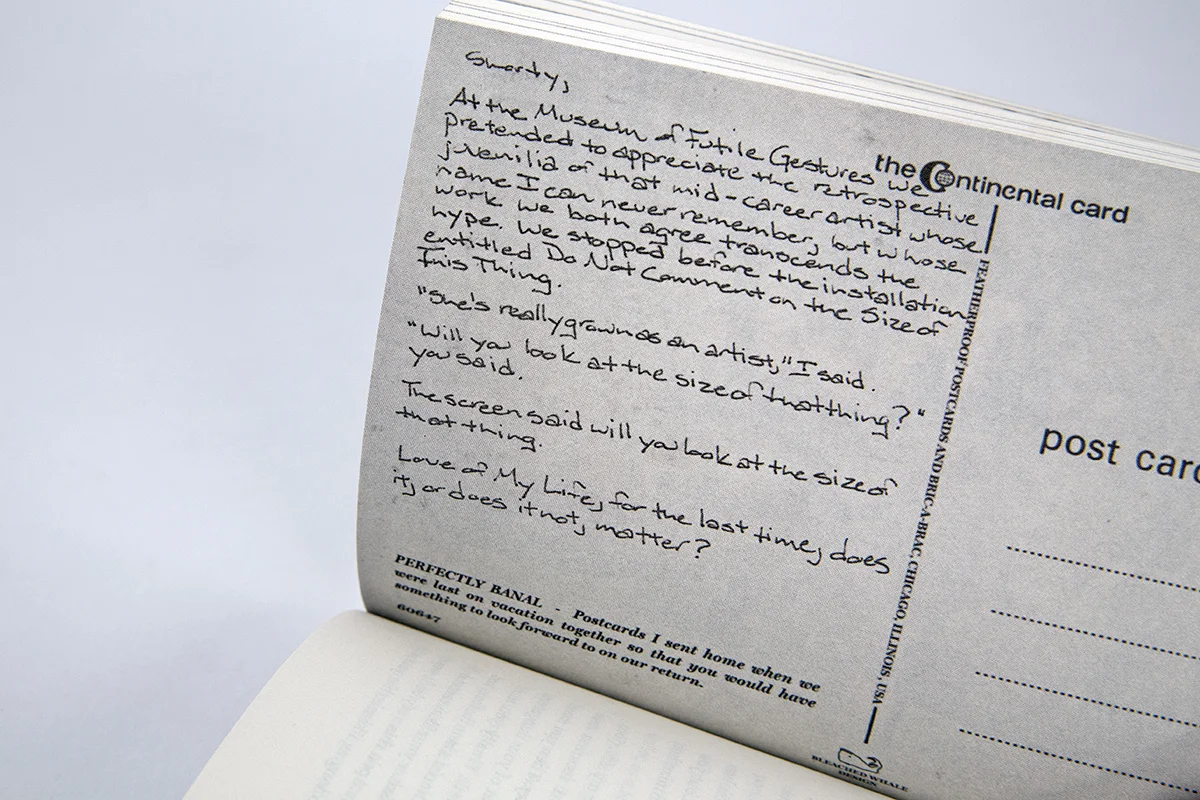 Smarty,
At the Museum of Futile Gestures we
pretended to appreciate the retrospective
juvenilia of that mid-career artist whose
name I can never remember, but whose
work we both agree transcends the
hype. We stopped before the installation
entitled Do Not Comment on the Size of
This Thing.
"She's really grown as an artist," I said.
"Will you look at the size of that thing?"
you said.
The screen said will you look at the size of
that thing.
Love of My Life, for the last time, does
it, or does it not, matter?
PERFECTLY BANAL - Postcards I sent home when we
were last on vacation together so that you would have
something to look forward to on our return.
60647
the Continental card
FEATHERPROOF POSTCARDS AND BRIC-A-BRAC, CHICAGO, ILLINOIS, USA
post card
BLEACHED WHALE
DESIGN